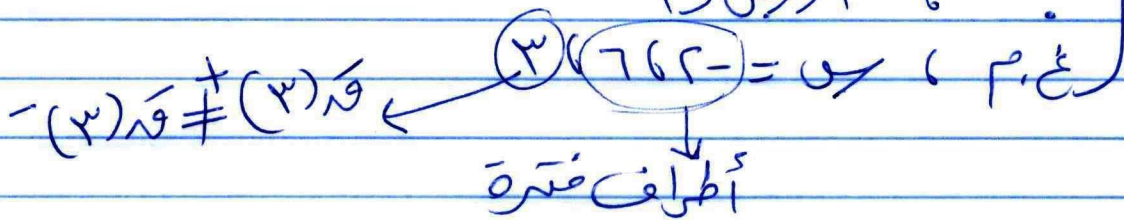 غ.م ، س = -٢ ، ٦ ، ٣
قَ(٣)⁺ ≠ قَ(٣)⁻
أطراف فترة